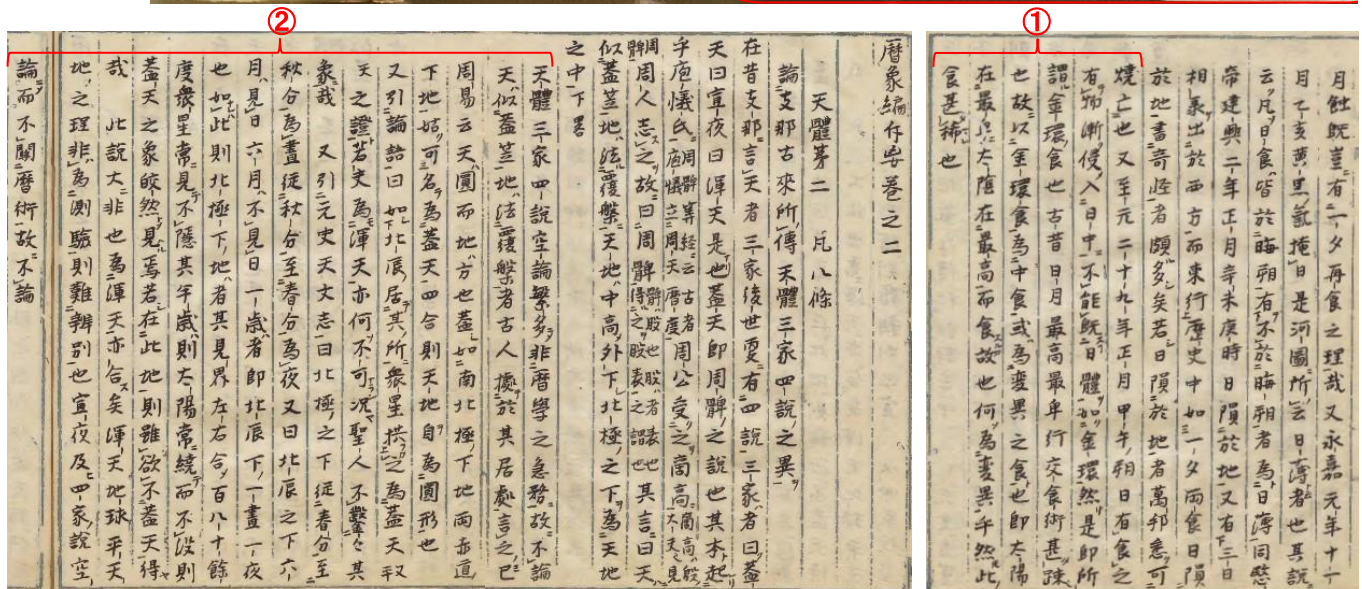 ②
①
月蝕既豈有一夕再食之理哉又永嘉元年十一
月乙亥黄黒氣掩日是河圖所云日薄者也其説
云凡日食皆於晦朔有不於晦朔者為日薄同愍
帝建興二年正月辛未庚時日隕於地又有三日
相承出於西方而東行歴史中如一夕両食日隕
於地書奇怪者頗多矣若日隕於地者萬邦悉可
燒亡也又至元二十九年正月甲午朔日有食之
有物漸侵入日中不能既日體如金環然是即所
謂金環食也古昔日月最高最卑行交食術甚疎
也故以金環食為中食或為変異之食也即太陽
在最卑太陰在最高而食故也何為変異乎然此
食甚稀也
暦象編斥妄巻之二
天體第二 凡八條
論支那古來所傳天體三家四説之異
在昔支那言天者三家後世更有四説三家者曰蓋
天曰宣夜曰渾天是也蓋天即周髀之説也其本起
乎庖犧氏周髀算経云古者庖犧立周天暦度周公受之商高商高殷大夫見
周髀周人志之故曰周髀髀股也股者表也得之股表之謂也其言曰天
似蓋笠地法覆槃天地中高外下北極之下為天地
之中下畧
天體三家四説空論繁多非暦學之急務故不論
天似蓋笠地法覆槃者古人據於其居處言之已
周易云天圓而地方也蓋如南北極下地兩亦直
下地始可名為蓋天四合則天地自為圓形也
又引論語曰如北辰居其所衆星拱之為蓋天
天之證若史為渾天亦何不可況聖人不鑿々其
象哉 又引元史天文志曰北極之下従春分至
秋分為晝従秋分至春分為夜又曰北辰之下六
月見日六月不見日一歳者即北辰下一晝一夜
也如此則北極下地者其見界左右合百八十餘
度衆星常見不隱其半歳則太陽常繞而不没則
蓋天之象皎然見焉若在此地則雖欲不蓋天得
哉 此説大非也為渾天亦合矣渾天地球平天
地之理非為測驗則難辨別也宣夜及四家説空
論而不關暦術故不論